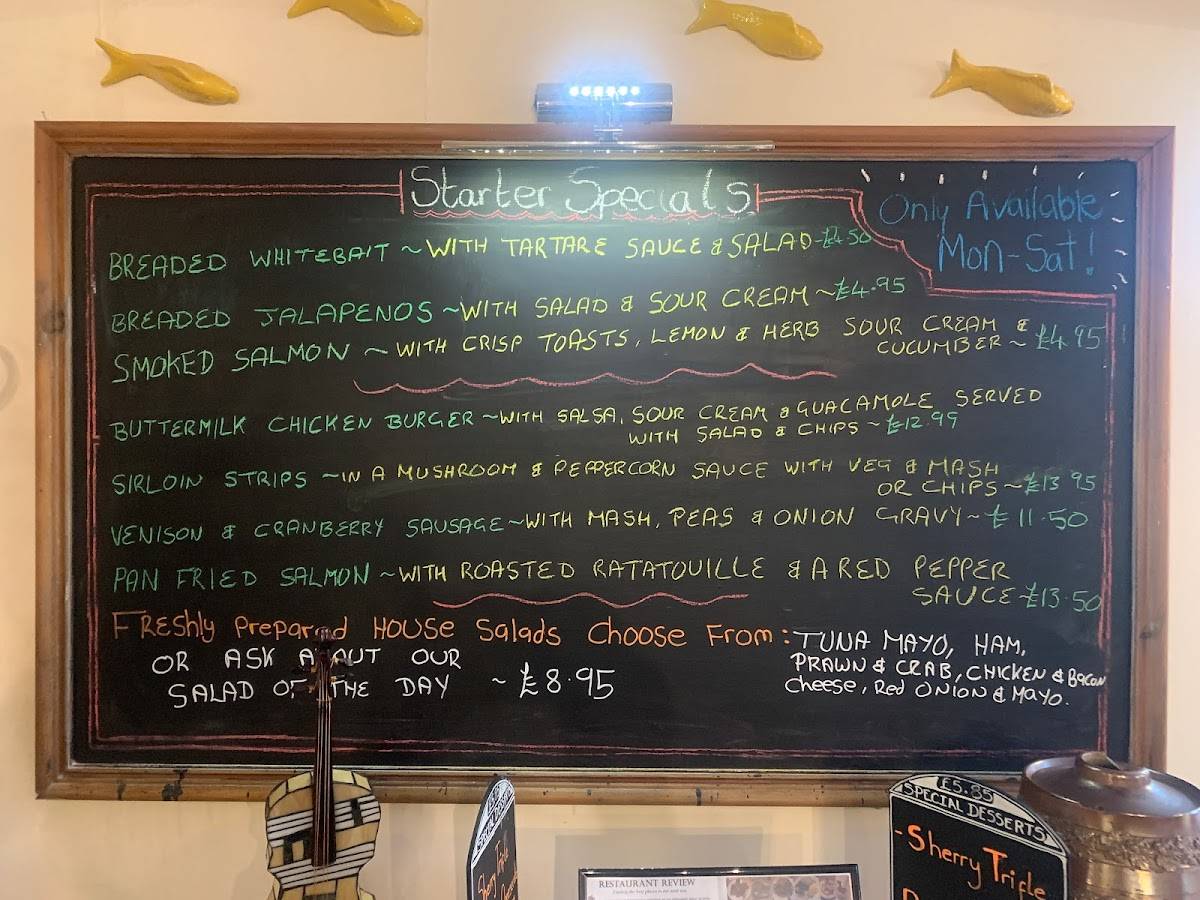 Starter Specials
Only Available
Mon-Sat!
BREADED WHITEBAIT ~ WITH TARTARE SAUCE & SALAD - £4.50
BREADED JALAPENOS ~ WITH SALAD & SOUR CREAM ~ £4.95
SMOKED SALMON ~ WITH CRISP TOASTS, LEMON & HERB SOUR CREAM &
CUCUMBER ~ £4.95
BUTTERMILK CHICKEN BURGER ~ WITH SALSA, SOUR CREAM & GUACAMOLE SERVED
WITH SALAD & CHIPS ~ £12.99
SIRLOIN STRIPS ~ IN A MUSHROOM & PEPPERCORN SAUCE WITH VEG & MASH
OR CHIPS ~ £13.95
VENISON & CRANBERRY SAUSAGE ~ WITH MASH, PEAS & ONION GRAVY ~ £11.50
PAN FRIED SALMON ~ WITH ROASTED RATATOUILLE & A RED PEPPER
SAUCE ~ £13.50
FREShly PrepareD HOUSe Salads Choose From:
TUNA MAYO, HAM,
PRAWN & CRAB, CHICKEN & Bacon
Cheese, Red ONION & MAYO.
OR ASK ABOUT OUR
SALAD OF THE DAY ~ £8.95
SPECIAL DESSERTS
Sherry Trifle
£5.85
SPECIAL DESSERTS
- Sherry Trifle
RESTAURANT REVIEW